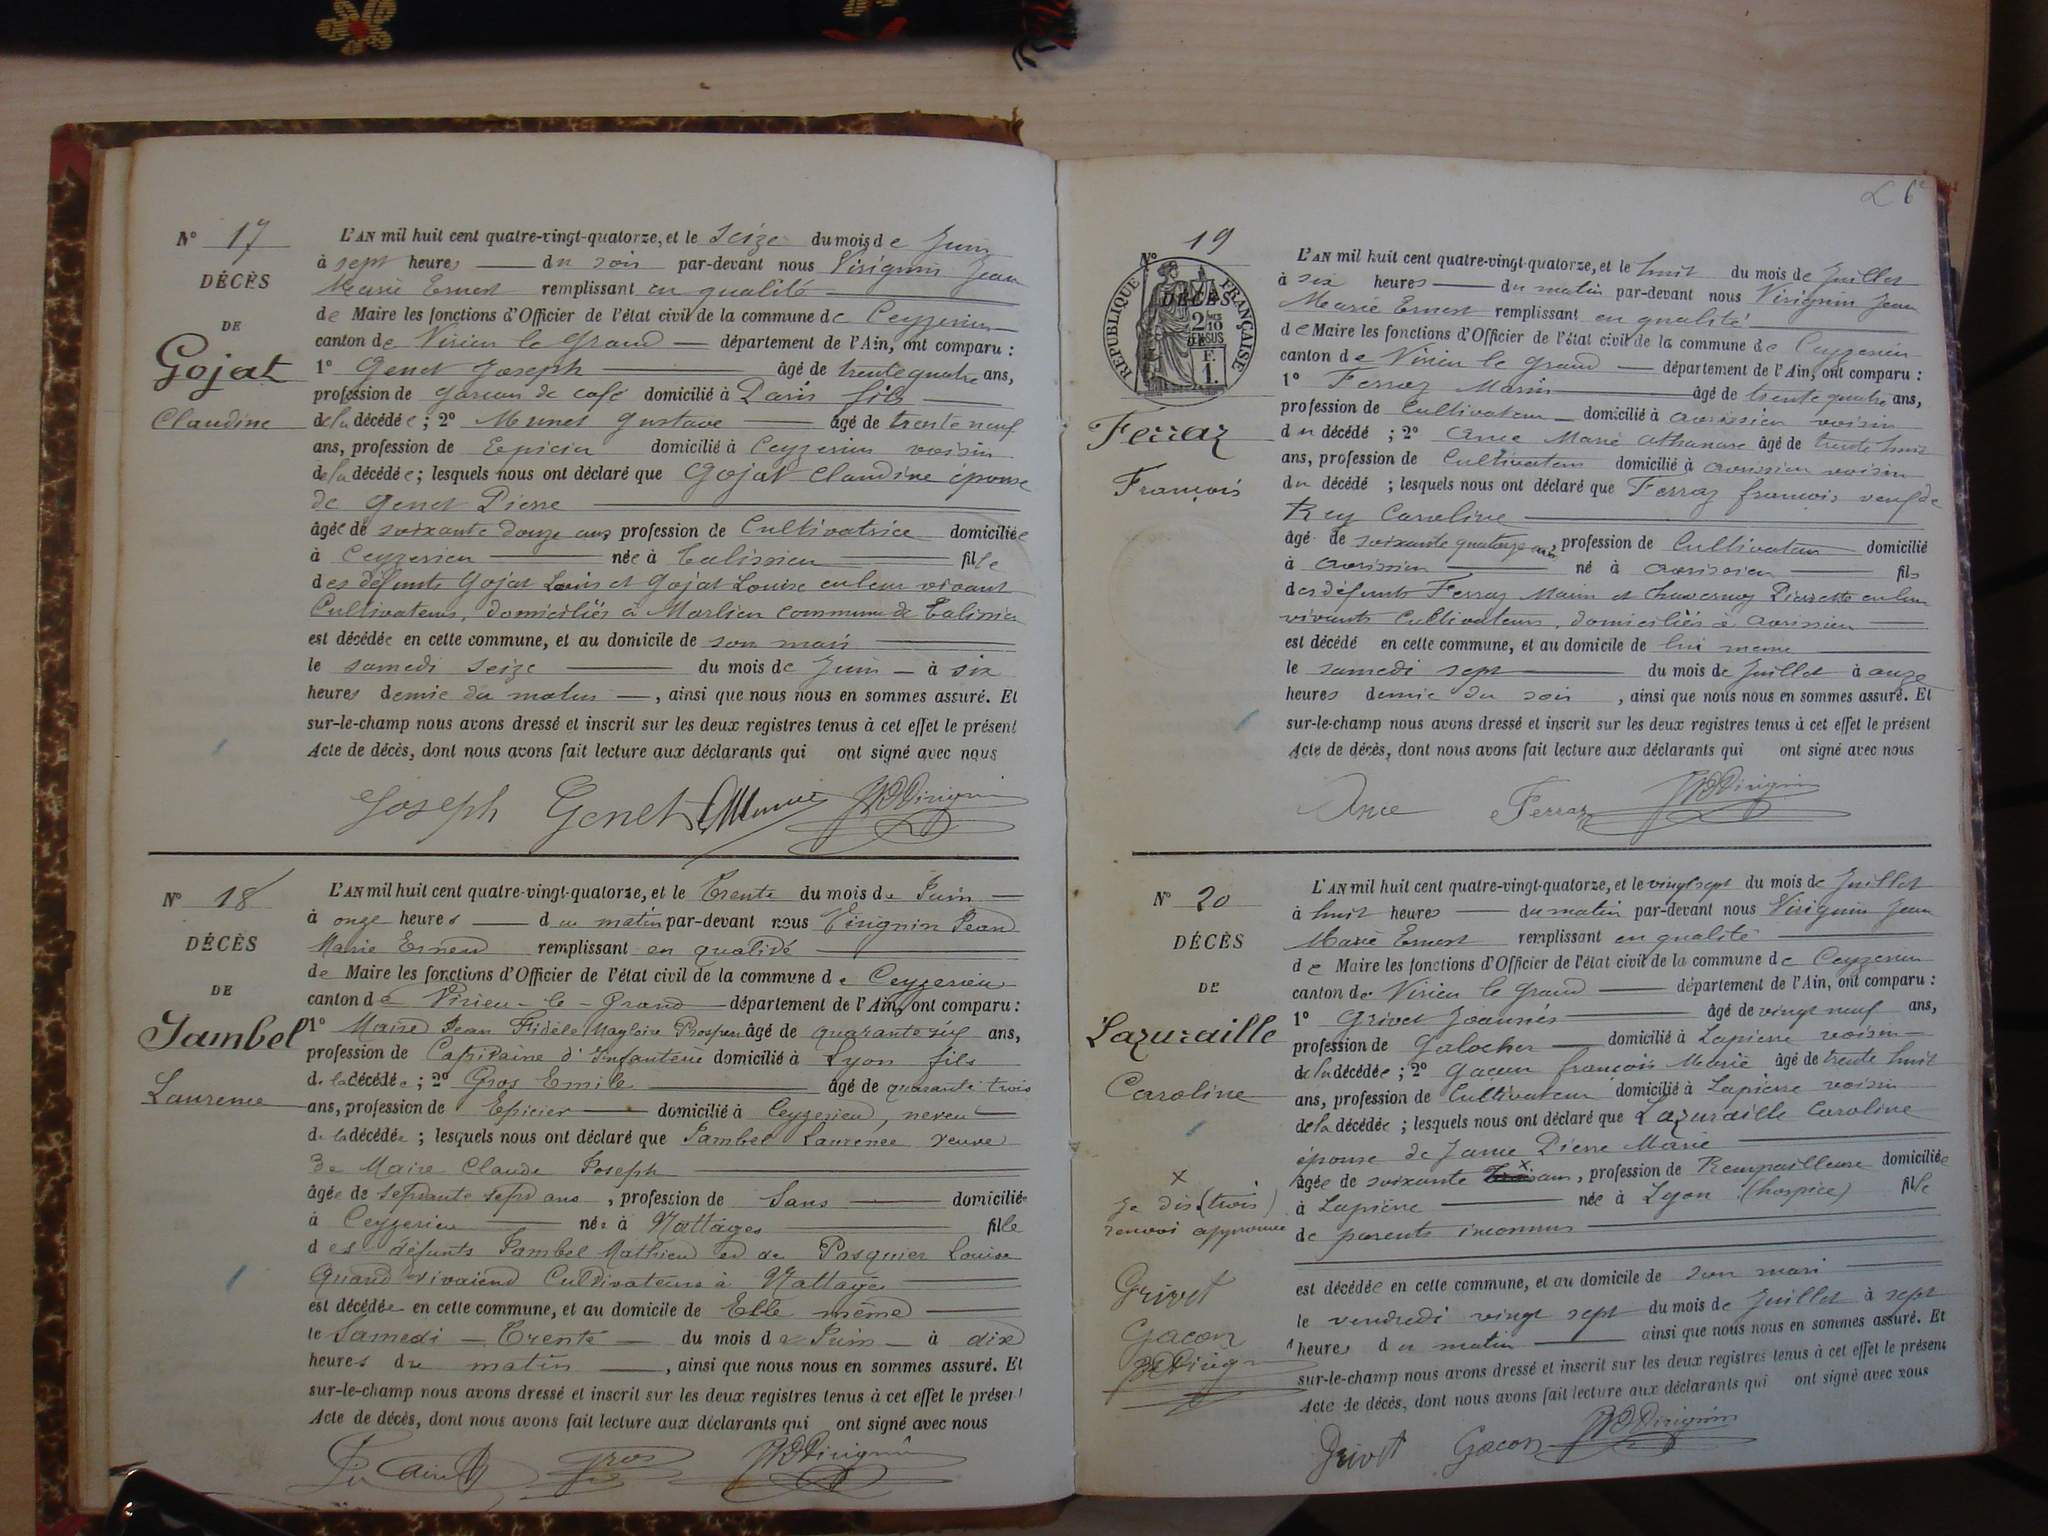 Nº 17
DÉCÈS
DE
Gojat
Claudine
L'AN mil huit cent quatre-vingt-quatorze, et le Seize du mois de Juin
à sept heures du soir par-devant nous Virignin Jean
Marie Ernest remplissant en qualité
de Maire les fonctions d'Officier de l'état civil de la commune de Ceyzerieu
canton de Virieu le Grand département de l'Ain, ont comparu :
1º Genet Joseph âgé de trente quatre ans,
profession de garçon de café domicilié à Paris fils
de la décédée ; 2º Munet Gustave âgé de trente neuf
ans, profession de Epicier domicilié à Ceyzerieu voisin
de la décédée ; lesquels nous ont déclaré que Gojat Claudine épouse
de Genet Pierre
âgée de soixante douze ans profession de Cultivatrice domiciliée
à Ceyzerieu née à Talissieu fille
des défunts Gojat Louis et Gojat Louise en leur vivant
Cultivateurs, domiciliés à Marlieu commune de Talissieu
est décédée en cette commune, et au domicile de son mari
le samedi seize du mois de Juin à six
heures demie du matin , ainsi que nous nous en sommes assuré. Et
sur-le-champ nous avons dressé et inscrit sur les deux registres tenus à cet effet le présent
Acte de décès, dont nous avons fait lecture aux déclarants qui ont signé avec nous
Joseph Genet Virignin
Nº 18
DÉCÈS
DE
Jambel
Laurence
L'AN mil huit cent quatre-vingt-quatorze, et le Trente du mois de Juin
à onze heures du matin par-devant nous Virignin Jean
Marie Ernest remplissant en qualité
de Maire les fonctions d'Officier de l'état civil de la commune de Ceyzerieu
canton de Virieu-le-Grand département de l'Ain, ont comparu :
1º Maire Jean Fidèle Magloire Prosper âgé de quarante six ans,
profession de Capitaine d'Infanterie domicilié à Lyon fils
de la décédée ; 2º Gros Emile âgé de quarante trois
ans, profession de Epicier domicilié à Ceyzerieu, neveu
de la décédée ; lesquels nous ont déclaré que Jambel Laurence veuve
de Maire Claude Joseph
âgée de septante sept ans , profession de Sans domiciliée
à Ceyzerieu née à Nattages fille
des défunts Jambel Mathieu et de Pasquier Louise
Quand vivaient Cultivateurs à Nattages
est décédée en cette commune, et au domicile de Elle même
le Samedi Trente du mois de Juin à dix
heures du matin , ainsi que nous nous en sommes assuré. Et
sur-le-champ nous avons dressé et inscrit sur les deux registres tenus à cet effet le présent
Acte de décès, dont nous avons fait lecture aux déclarants qui ont signé avec nous
Gros Virignin
6
Nº 19
RÉPUBLIQUE FRANÇAISE
DÉCÈS
2/10
EN SUS
F.
1.
Ferraz
François
L'AN mil huit cent quatre-vingt-quatorze, et le huit du mois de Juillet
à six heures du matin par-devant nous Virignin Jean
Marie Ernest remplissant en qualité
de Maire les fonctions d'Officier de l'état civil de la commune de Ceyzerieu
canton de Virieu le Grand département de l'Ain, ont comparu :
1º Ferraz Marin âgé de trente quatre ans,
profession de Cultivateur domicilié à Avrissieu voisin
du décédé ; 2º Ance Marie Athanase âgé de trente huit
ans, profession de Cultivateur domicilié à Avrissieu voisin
du décédé ; lesquels nous ont déclaré que Ferraz françois veuf de
Rey Caroline
âgé de soixante quatorze ans, profession de Cultivateur domicilié
à Avrissieu né à Avrissieu fils
des défunts Ferraz Marin et Pierrette en leur
vivants Cultivateurs, domiciliés à Avrissieu
est décédé en cette commune, et au domicile de lui meme
le samedi sept du mois de Juillet à onze
heures demie du soir , ainsi que nous nous en sommes assuré. Et
sur-le-champ nous avons dressé et inscrit sur les deux registres tenus à cet effet le présent
Acte de décès, dont nous avons fait lecture aux déclarants qui ont signé avec nous
Ance Ferraz Virignin
Nº 20
DÉCÈS
DE
Lazuraille
Caroline
x
Je dis (trois)
renvoi approuvé
Grivet
Gacon
Virign
L'AN mil huit cent quatre-vingt-quatorze, et le vingt sept du mois de Juillet
à huit heures du matin par-devant nous Virignin Jean
Marie Ernest remplissant en qualité
de Maire les fonctions d'Officier de l'état civil de la commune de Ceyzerieu
canton de Virieu le Grand département de l'Ain, ont comparu :
1º Grivet Joannès âgé de vingt neuf ans,
profession de Galocher domicilié à Lapierre voisin
de la décédée ; 2º Gacon françois Marie âgé de trente huit
ans, profession de Cultivateur domicilié à Lapierre voisin
de la décédée ; lesquels nous ont déclaré que Lazuraille Caroline
épouse de Jame Pierre Marie
âgée de soixante x ans, profession de Rempailleuse domiciliée
à Lapierre née à Lyon (hospice) fille
de parents inconnus
est décédée en cette commune, et au domicile de son mari
le vendredi vingt sept du mois de Juillet à sept
heures du matin ainsi que nous nous en sommes assuré. Et
sur-le-champ nous avons dressé et inscrit sur les deux registres tenus à cet effet le présent
Acte de décès, dont nous avons fait lecture aux déclarants qui ont signé avec nous
Grivet Gacon Virignin